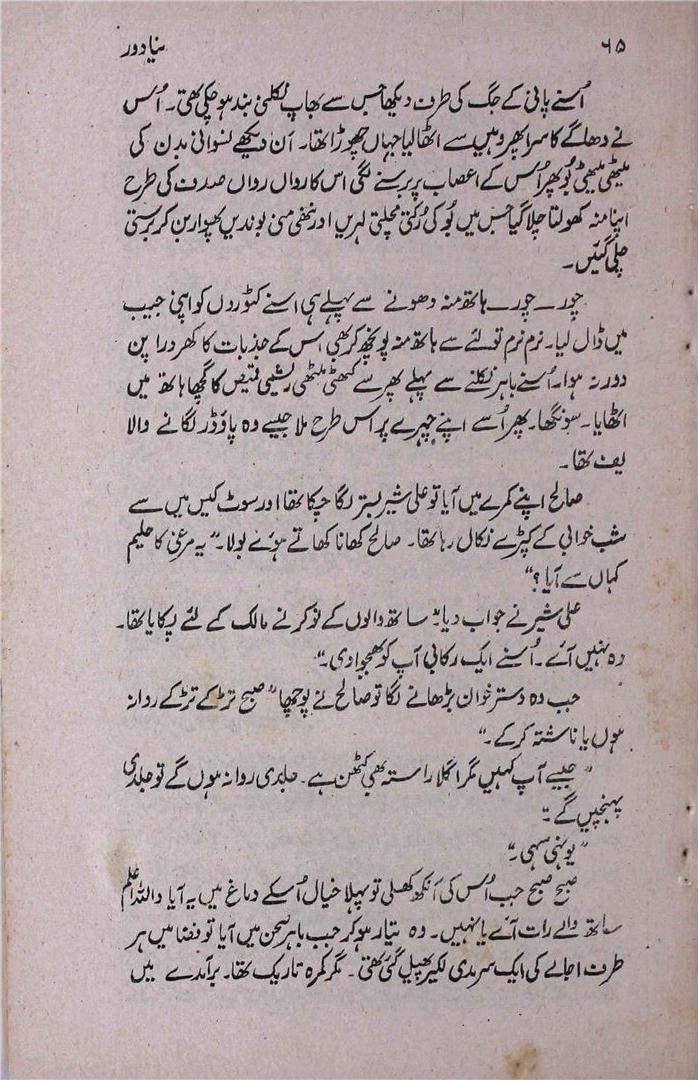 ۶۵ نیا دور
اُسنے پانی کے جگ کی طرف دیکھا جس سے بھاپ نکلنی بند ہو چکی تھی۔ اُس
نے دھاگے کا سرا پھر وہیں سے اٹھا لیا جہاں چھوڑا تھا۔ اَن دیکھے نسوانی بدن کی
میٹھی میٹھی بُو پھر اُس کے اعصاب پر برسنے لگی اس کا رواں رواں صدف کی طرح
اپنا منہ کھولتا چلا گیا جس میں بُو کی رُکتی مچلتی لہریں اور ننھی منی بوندیں پھوار بن کر برستی
چلی گئیں۔
چور۔ چور۔ ہاتھ منہ دھونے سے پہلے ہی اسنے کٹوردل کو اپنی جیب
میں ڈال لیا۔ نرم نرم تولئے سے ہاتھ منہ پونچھ کر بھی اس کے جذبات کا کھردرا پن
دور نہ ہوا۔ اُسنے باہر نکلنے سے پہلے پھر سے کھٹی میٹھی ریشمی قمیص کا گچھا ہاتھ میں
اٹھایا۔ سونگھا۔ پھر اُسے اپنے چہرے پر اس طرح ملا جیسے وہ پاؤڈر لگانے والا
پف تھا۔
صالح اپنے کمرے میں آیا تو علی شیر بستر لگا چکا تھا اور سوٹ کیس میں سے
شب خوابی کے کپڑے نکال رہا تھا۔ صالح کھانا کھاتے ہوئے بولا۔ "یہ مرغی کا حلیم
کہاں سے آیا؟"
علی شیر نے جواب دیا "ساتھ والوں کے نوکر نے مالک کے لئے پکایا تھا۔
وہ نہیں آئے۔ اُسنے ایک رکابی آپ کو بھجوا دی۔"
جب وہ دسترخوان بڑھانے لگا تو صالح نے پوچھا "صبح تڑکے تڑکے روانہ
ہوں یا ناشتہ کر کے۔"
"جیسے آپ کہیں مگر اگلا راستہ بھی کٹھن ہے۔ جلدی روانہ ہوں گے تو جلدی
پہنچیں گے۔"
"یونہی سہی۔"
صبح صبح جب اُس کی آنکھ کھلی تو پہلا خیال اُسکے دماغ میں یہ آیا واللہ اعلم
ساتھ والے رات آئے یا نہیں۔ وہ تیار ہو کر جب باہر صحن میں آیا تو فضا میں ہر
طرف اجالے کی ایک سرمدی لکیر پھیل گئی تھی۔ مگر کمرہ تاریک تھا۔ برآمدے میں